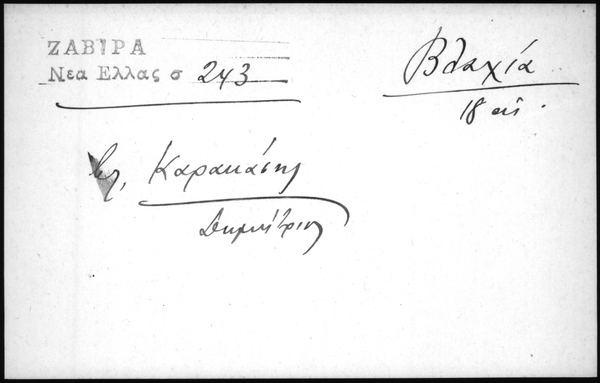 ΖΑΒΙΡΑ
Νεα Ελλας σ 243
Βλαχία
18 αἰ.
βλ, Καρακάσης
Δημήτριος